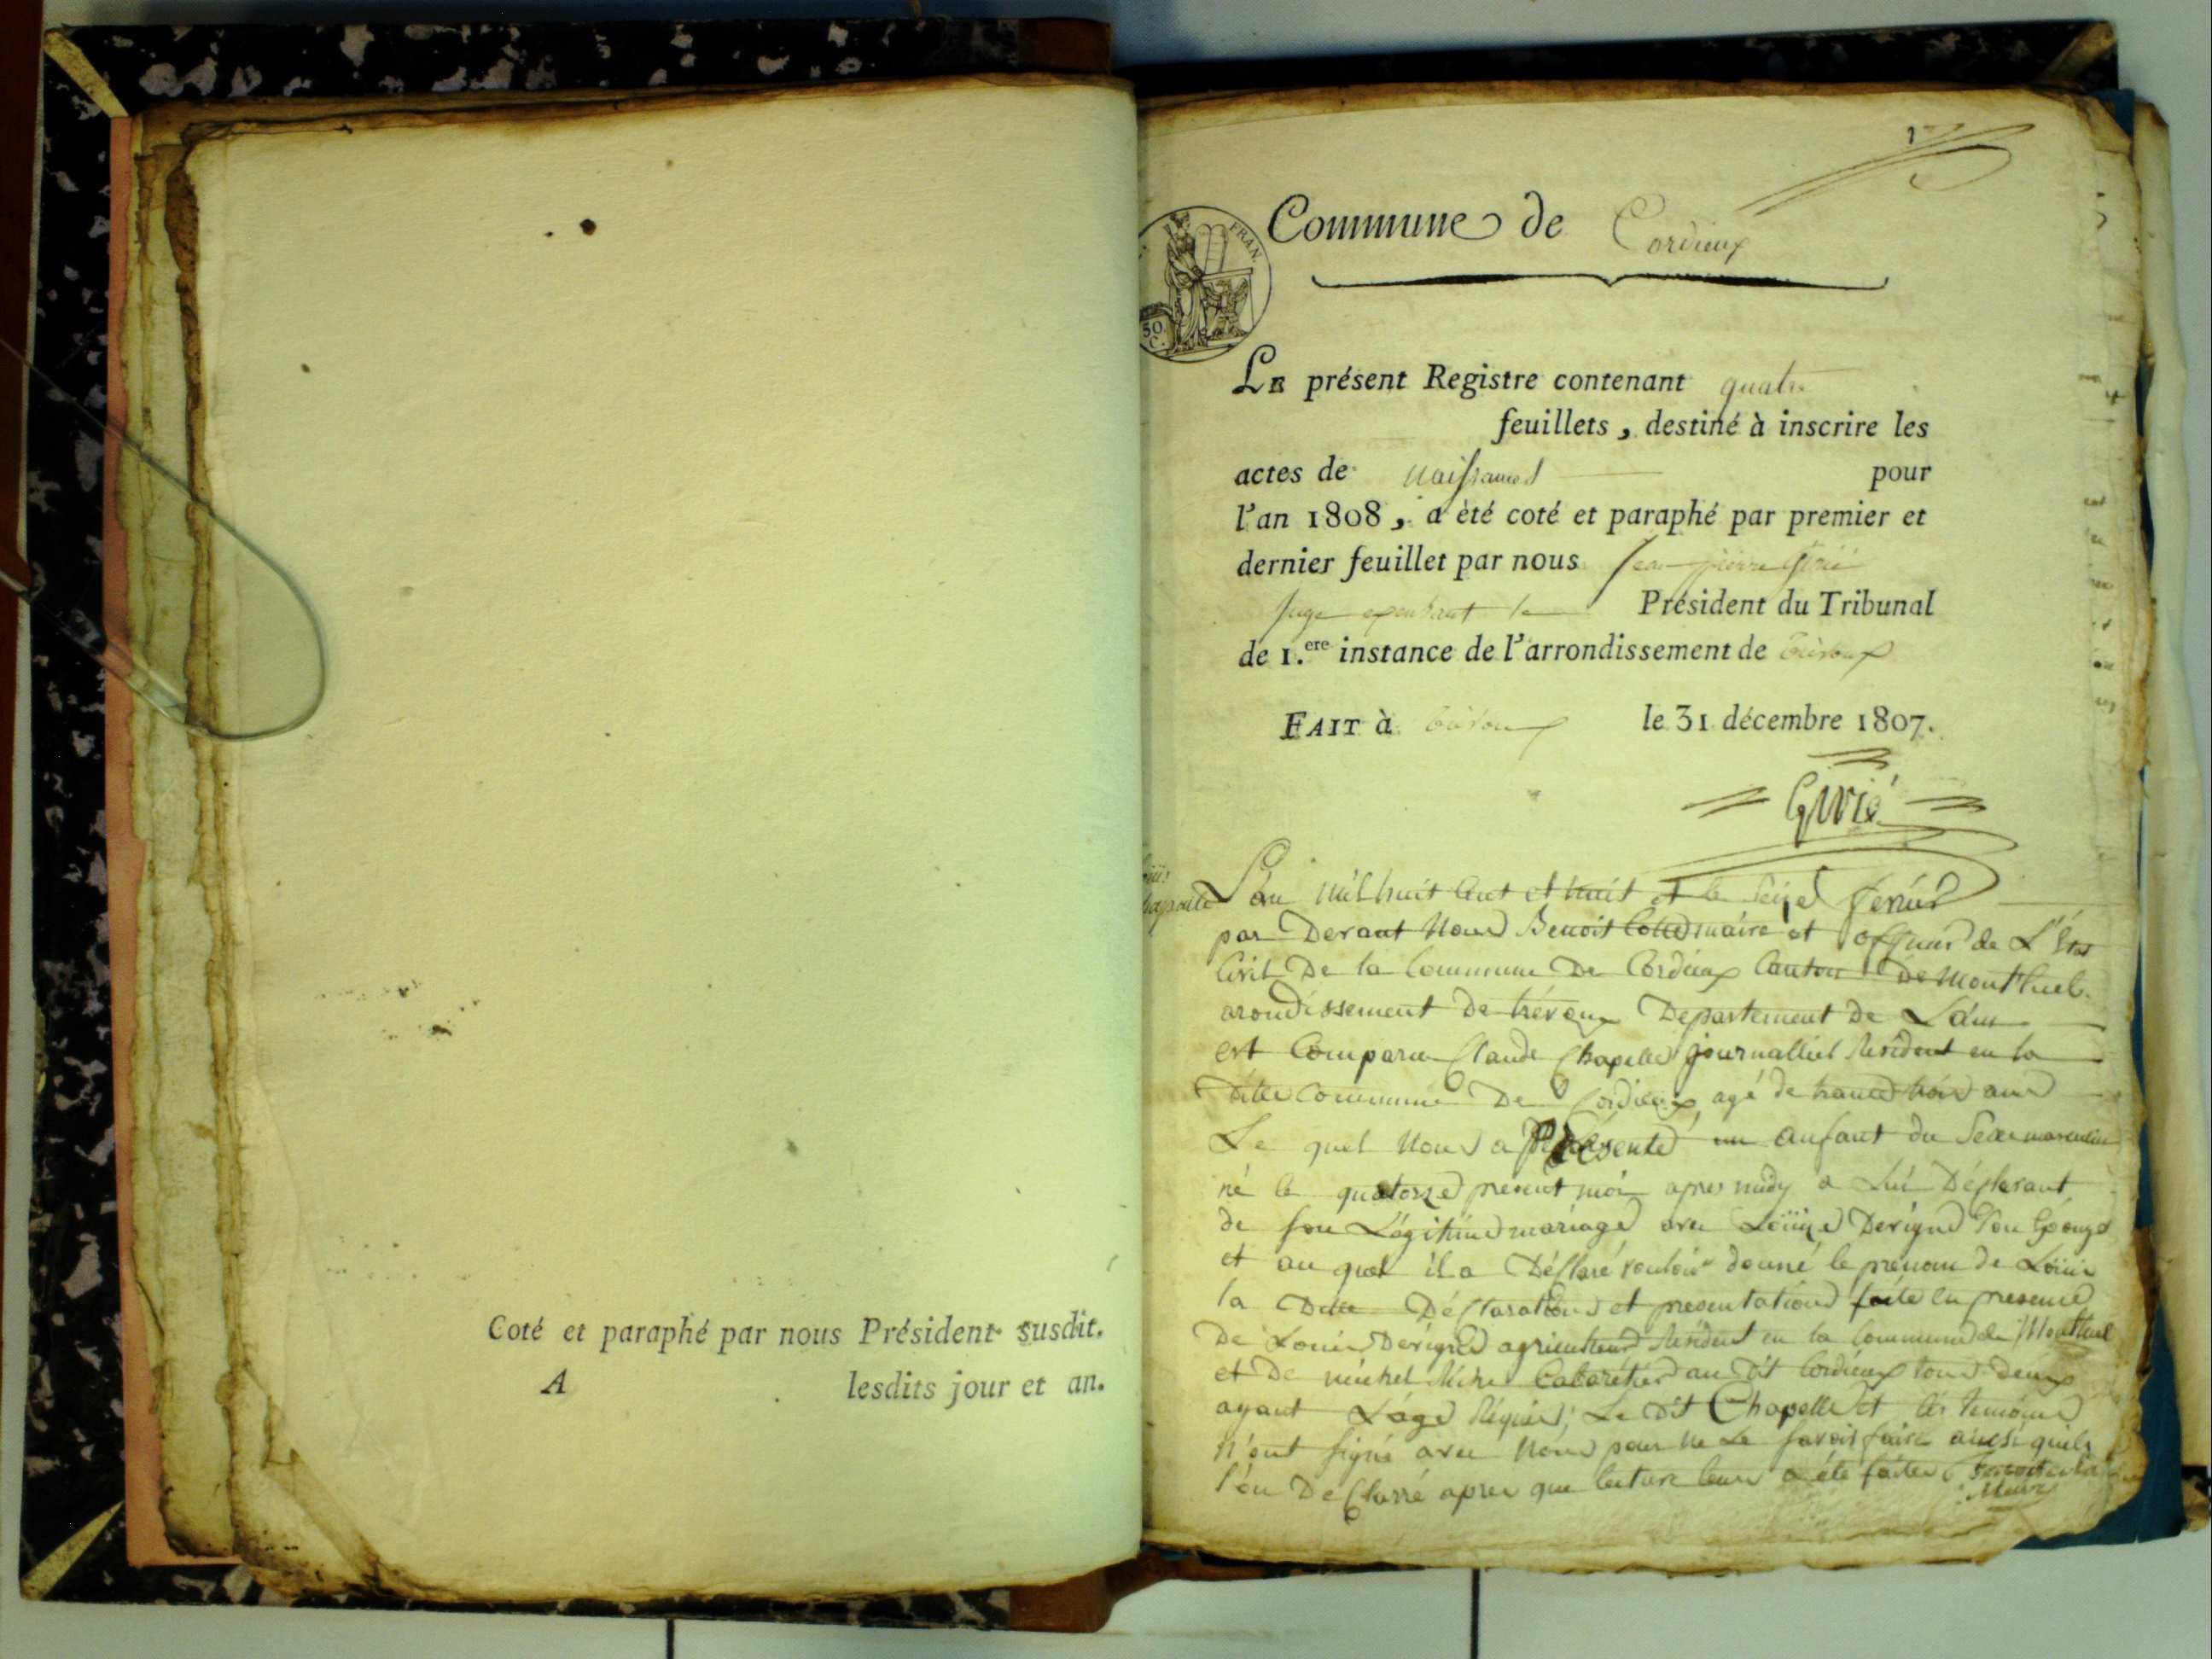 Coté et paraphé par nous Président susdit.
A lesdits jour et an.
1
Commune de Cordieux
FRAN.
50 C.
LE présent Registre contenant quatre
feuillets, destiné à inscrire les
actes de naissances pour
l'an 1808, a èté coté et paraphé par premier et
dernier feuillet par nous Jean pierre Girié
Juge exerçant le Président du Tribunal
de 1.ere instance de l'arrondissement de Trévoux
FAIT à Trévoux le 31 décembre 1807.
Girié
L'an mil huit Cent et huit et le Seize fevrier
par Devant Nous Benoit maire et officier de L'Etat
Civil De la Commune De Cordieux Canton De Montluel
arondissement De trévoux Departement De L'ain
est Comparu Claude Chapelle journallier Resident en la
ditte Commune De Cordieux agé de trante trois ans
Le quel Nous a Présenté un anfant du Sexe masculin
né le quatorze présent mois apres midy a Lui Déclarant
de son Légitime mariage avec Loüize Derigne Son Epouze
et au quel il a Déclaré vouloir donné le prénom de Loüis
la Ditte Déclaration et presentation faite en presence
De Louis Derigne agriculteur Resident en la Commune de Montluel
et De michel Cabaretier au Dit Cordieux tous deux
ayant L'age Réquis; Le Dit Chapelle et les temoins
n'ont signé avec Nous pour ne Le savoir faire ainsi quils
l'on Déclarré apres que lecture leurs a été faite
Maire